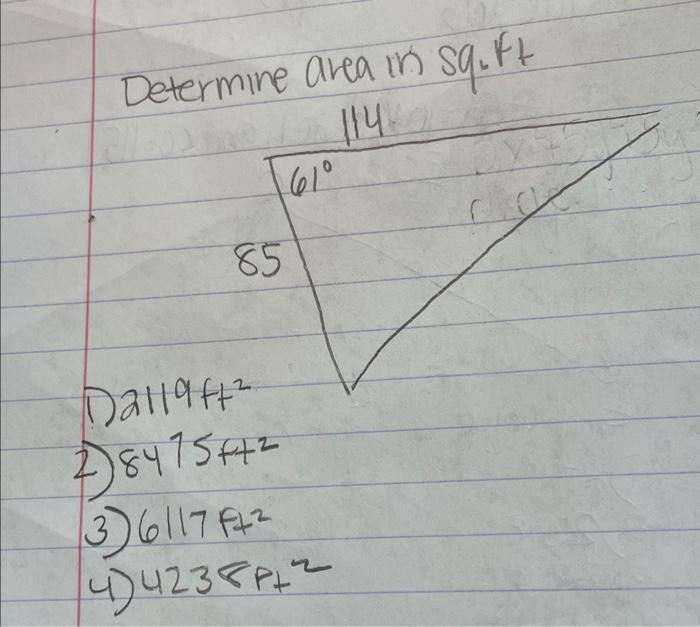 Determine area in sq.ft
114
61°
85
1) 2119 ft²
2) 8475 ft²
3) 6117 ft²
4) 4238 ft²